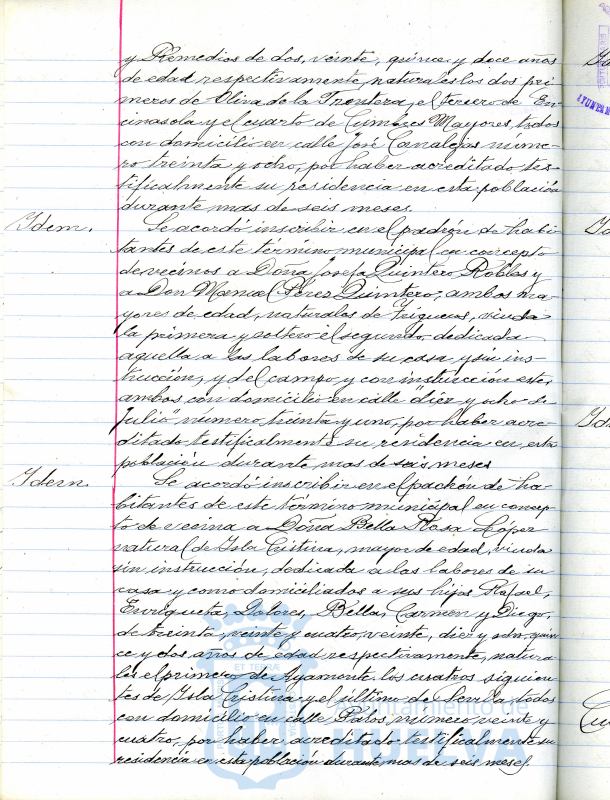 y Remedios de dos, veinte, quince y doce años
de edad respectivamente, naturales los dos pri
meros de Oliva de la Frontera, el tercero de En
cinasola y el cuarto de Cumbres Mayores, todos
con domicilio en calle José Canalejas núme
ro treinta y ocho, por haber acreditado tes-
tificalmente su residencia en esta población
durante mas de seis meses.
Idem. Se acordó inscribir en el padrón de habi
tantes de este término municipal en concepto
de vecinos a Doña Josefa Quintero Robles y
a Don Manuel Pérez Quintero, ambos ma
yores de edad, naturales de Trigueros, viuda
la primera y soltero el segundo, dedicada
aquella a las labores de su casa y sin ins-
trucción, y del campo y con instrucción este,
ambos con domicilio en calle diez y ocho de
Julio número treinta y uno, por haber acre
ditado testificalmente su residencia en esta
población durante mas de seis meses
Idem. Se acordó inscribir en el padrón de ha-
bitantes de este término municipal en concep
to de vecina a Doña Bella Rosa López
natural de Isla Cristina, mayor de edad, viuda
sin instrucción, dedicada a las labores de su
casa y como domiciliados a sus hijos Rafael,
Enriqueta, Dolores, Bella, Carmen y Diego,
de treinta, veinte y cuatro, veinte, diez y ocho, quin
ce y dos años de edad respectivamente, natura
les el primero de Ayamonte los cuatro siguien
tes de Isla Cristina y el último de Huelva todos
con domicilio en calle Palos, número veinte y
cuatro, por haber acreditado testificalmente su
residencia en esta población durante mas de seis meses
Ayuntamiento de
HUELVA
ET TERRÆ